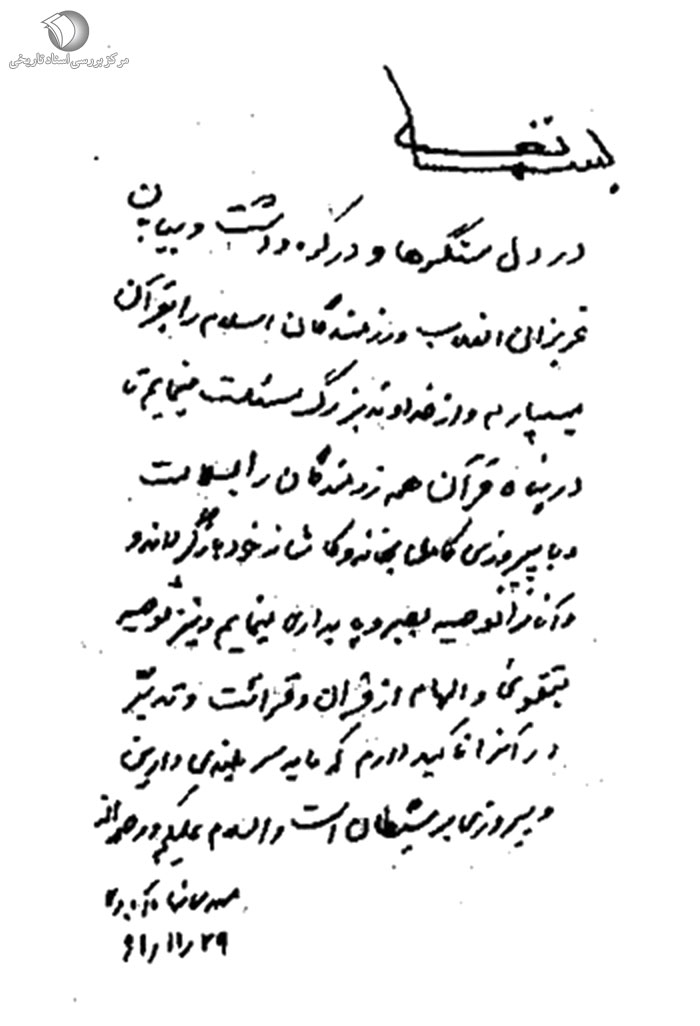 مرکز بررسی اسناد تاریخی
بسمه تعالی
در دل سنگرها و در کوه و دشت و بیابان
عزیزان انقلاب و رزمندگان اسلام را بقرآن
میسپارم و از خداوند بزرگ مسئلت مینمایم تا
در پناه قرآن همه رزمندگان را بسلامت
و با پیروزی کامل بخانه و کاشانه خود بازگرداند و
و آنانرا توصیه بصبر و پایداری مینمایم و نیز توصیه
بتقوی و الهام از قرآن و قرائت و تدبر
در آنرا تاکید دارم که مایه سربلندی دارین
و پیروزی بر شیطان است والسلام علیکم و رحمة الله
۶۱/۱۱/۲۹